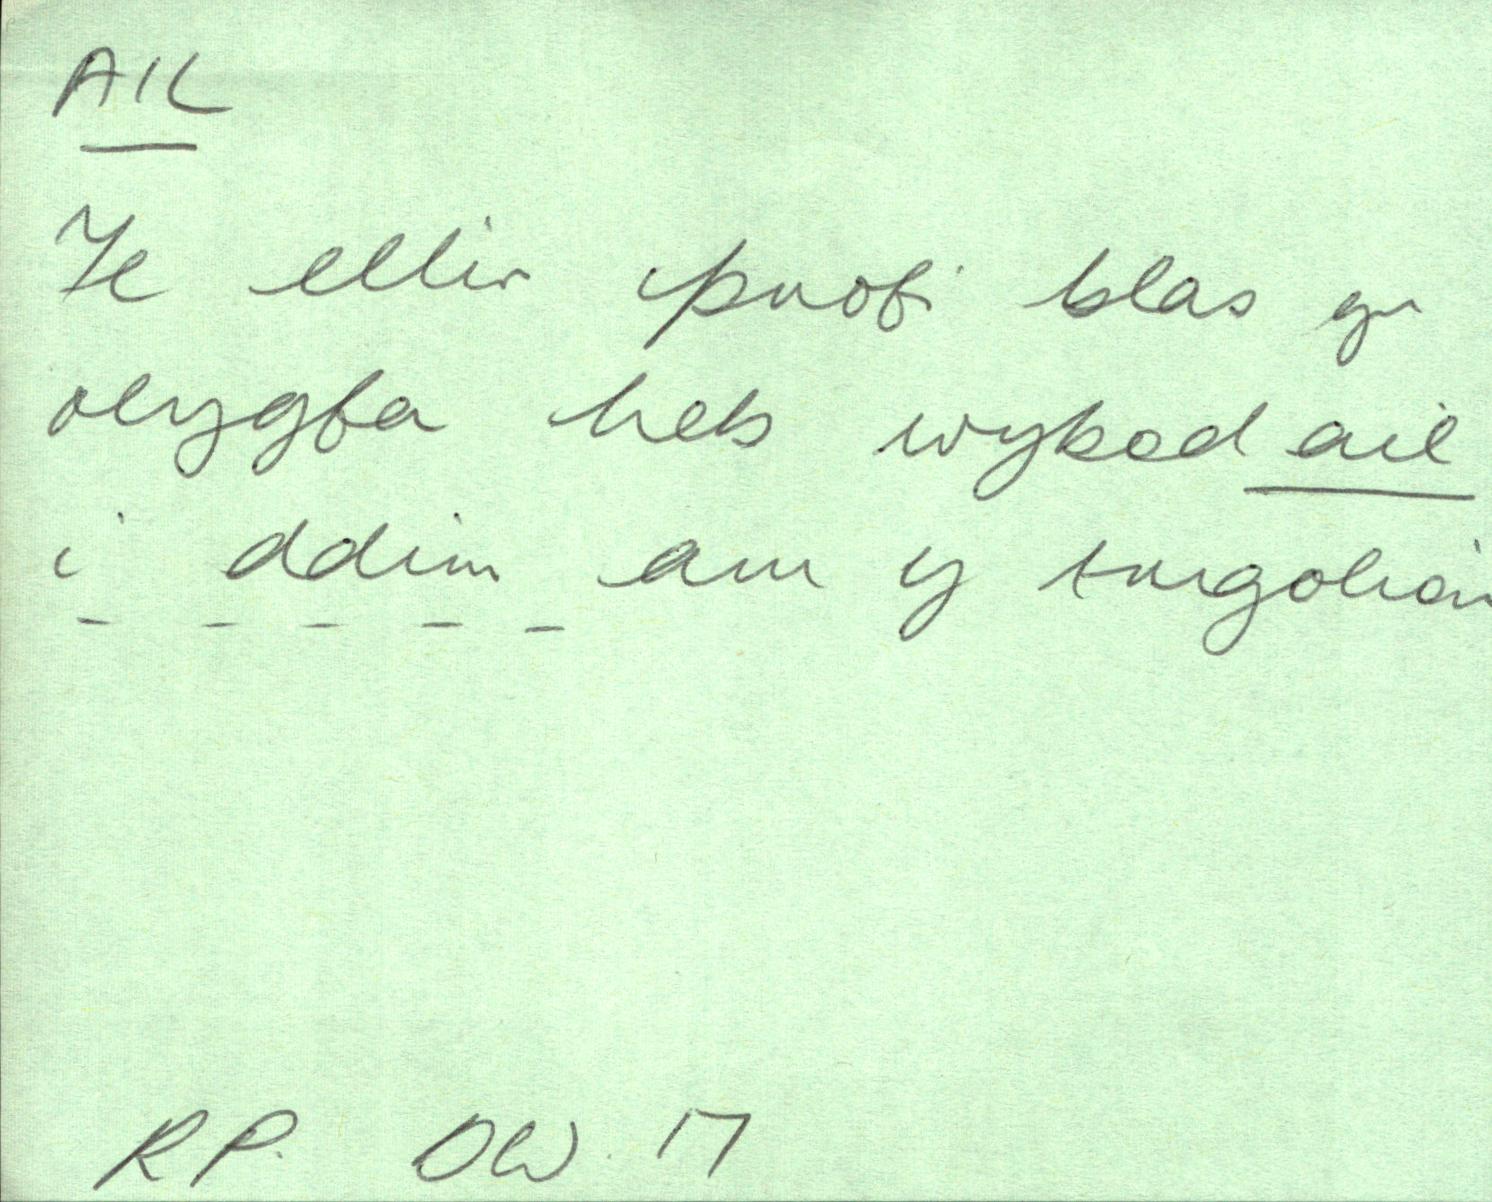 AIL
Fe ellir profi blas yr
olygfa heb wybod ail
i ddim am y trigolion
R P. DW. 17